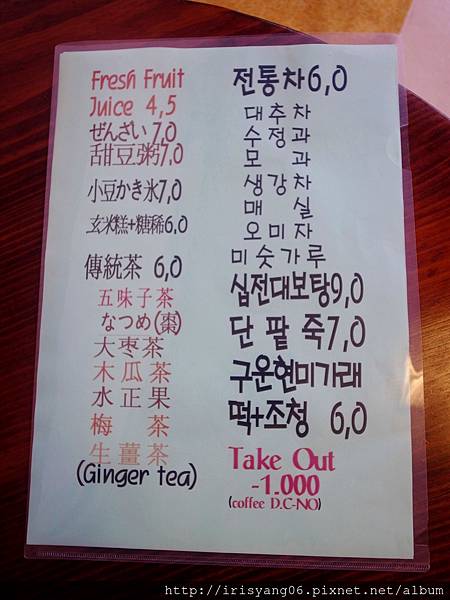 Fresh Fruit
Juice 4,5
ぜんざい 7,0
甜豆粥7,0
小豆かき氷7,0
玄米糕+糖稀6,0
傳統茶 6,0
五味子茶
なつめ(棗)
大枣茶
木瓜茶
水正果
梅 茶
生薑茶
(Ginger tea)
전통차6,0
대추차
수정과
모 과
생강차
매 실
오미자
미숫가루
십전대보탕9,0
단 팥 죽7,0
구운현미가래
떡+조청 6,0
Take Out
-1.000
(coffee D.C-NO)
http://irisyang06.pixnet.net/album